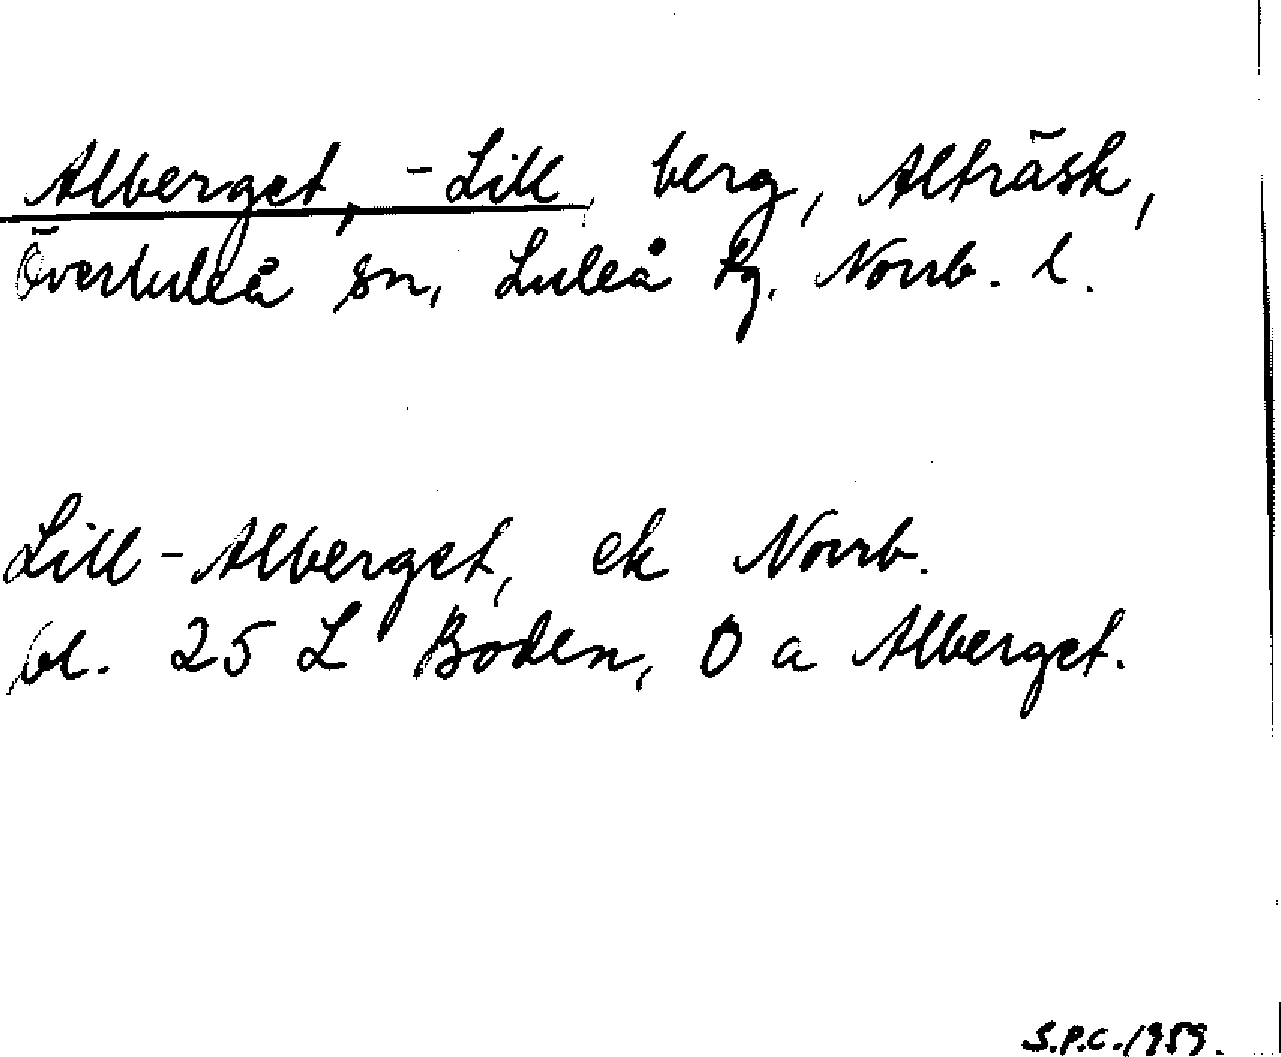 Alberget, -Lill, berg, Alträsk,
Överluleå sn, Luleå tg. Norrb. l.
Lill-Alberget, ek Norrb.
bl. 25 L Boden, O a Alberget.
S.P.C. 1959.